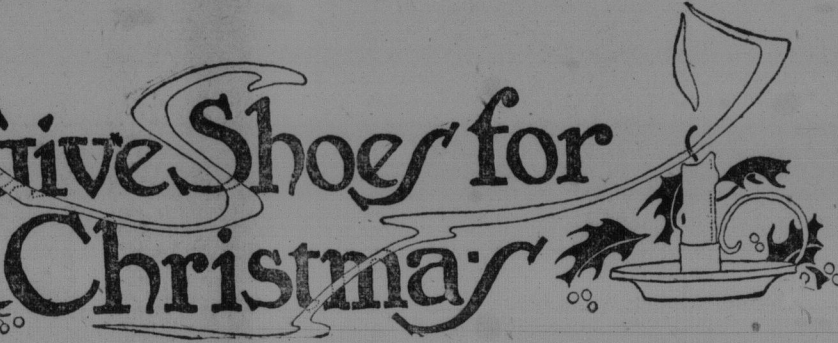 Give Shoes for
Christmas